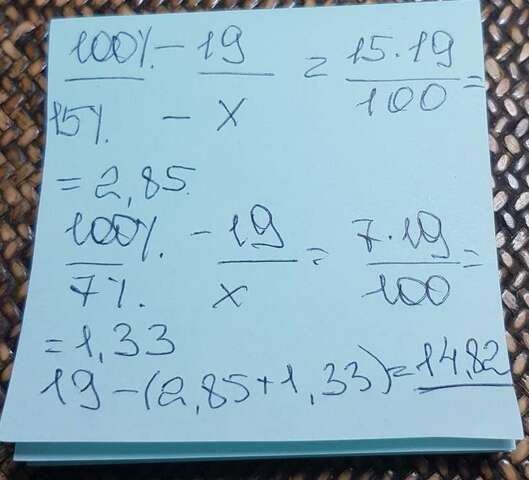 100% - 19 = 15·19 =
15% - x 100
= 2,85
100% - 19 = 7·19 =
7% x 100
= 1,33
19-(2,85+1,33)=14,82